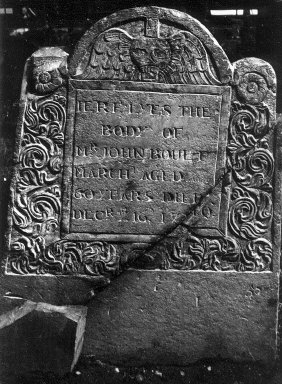 HERE LYES THE
BODY OF
Mr. JOHN BOULT
MARCHt AGED
60 YEARS DIED
DECbr